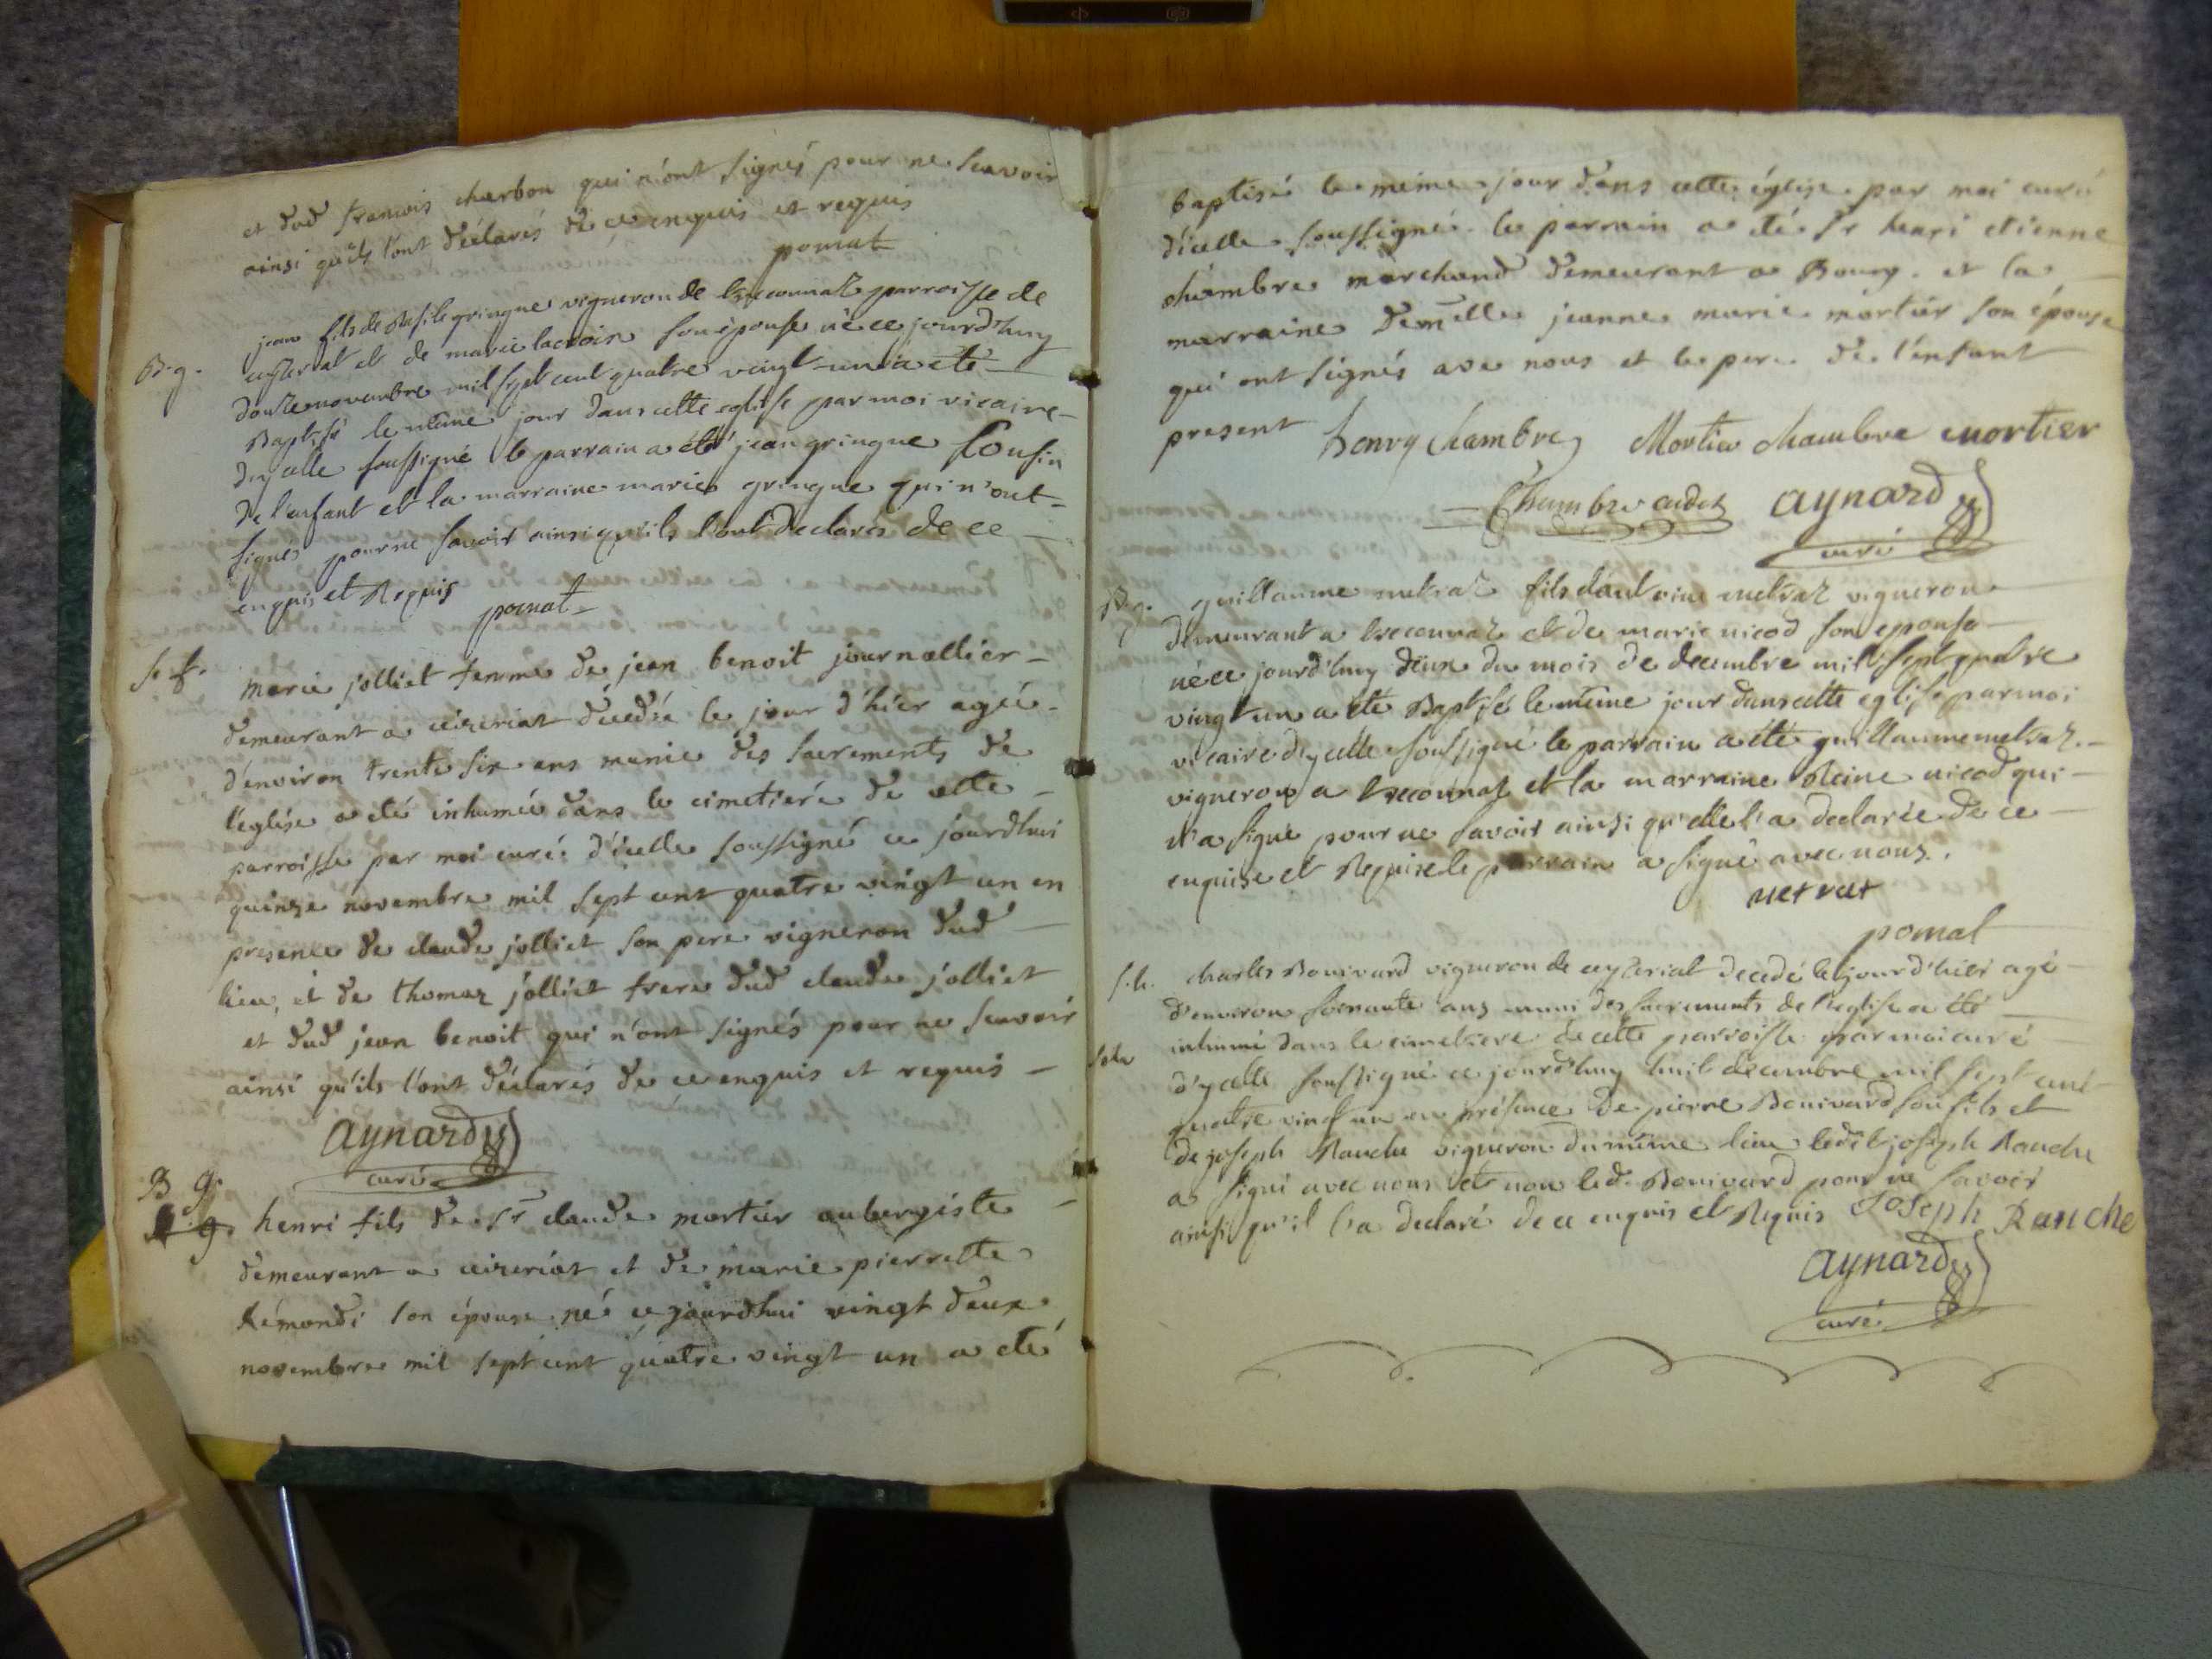 et dud francois charbon qui n'ont signés pour ne scavoir
ainsi qu'ils l'ont déclarés de ce enquis et requis
pomat
B. g.
jean fils de Basile gringue vigneron de treconnaz parroisse de
ceyseriat et de marie lacroix son épouse né ce jourd'huy
douze novembre mil sept cent quatre vingt-un a été
Baptisé le même jour dans cette eglise par moi vicaire
d'ycelle soussigné le parrain a été jean gringue Cousin
de l'enfant et la marraine marie gringue qui n'ont
signés pour ne savoir ainsi qu'ils l'ont declarés de ce
enquis et Requis
pomat
s. f.
marie jolliet femme de jean benoit journallier
demeurant a ceizeriat décédée le jour d'hier agée
d'environ trente six ans munie des sacrements de
l'église a été inhumée dans le cimetiere de cette
parroisse par moi curé d'icelle soussigné ce jourdhui
quinze novembre mil sept cent quatre vingt un en
presence de claude jolliet son pere vigneron dud
lieu, et de thomaz jolliet frere dud claude jolliet
et dud jean benoit qui n'ont signés pour ne scavoir
ainsi qu'ils l'ont déclarés de ce enquis et requis
aynard
curé
B g.
g. henri fils de sr claude mortier aubergiste
demeurant a ceizeriat et de marie pierrette
Rémondi son épouse né ce jourdhui vingt deux
novembre mil sept cent quatre vingt un a été
baptisé le meme jour dans cette église par moi curé
d'icelle soussigné le parrain a été sr henri etienne
chambre marchand demeurant a Bourg et la
marraine demlle jeanne marie mortier son épouse
qui ont signés avec nous et le pere de l'enfant
present henry Chambre Mortier chambre mortier
Chambre cadet aynard
curé
B. g.
guillaume metraz fils d'antoine metraz vigneron
demeurant a treconnaz et de marie nicod son epouse
né ce jourd'huy deux du mois de decembre mil sept quatre
vingt un a été Baptisé le même jour dans cette eglise par moi
vicaire d'ycelle soussigné le parrain a été guillaume metraz
vigneron a treconnaz et la marraine Reine nicod qui
n'a signé pour ne savoir ainsi qu'elle l'a declarée de ce
enquise et Requise le parrain a signé avec nous.
metrat
pomat
s. h. charles Bonivard vigneron de ceyseriat decedé le jour d'hier agé
d'environ soixante ans muni des sacrements de l'eglise a été
inhumé dans le cimetiere de cette parroisse par moi curé
d'ycelle soussigné ce jourd'huy huit decembre mil sept cent
quatre vingt un en présence de pierre Bonivard son fils et
de joseph Ranche vigneron du même lieu ledit joseph Ranche
a signé avec nous et non led. Bonivard pour ne savoir
ainsi qu'il l'a declaré de ce enquis et Requis Joseph Ranche
aynard
curé